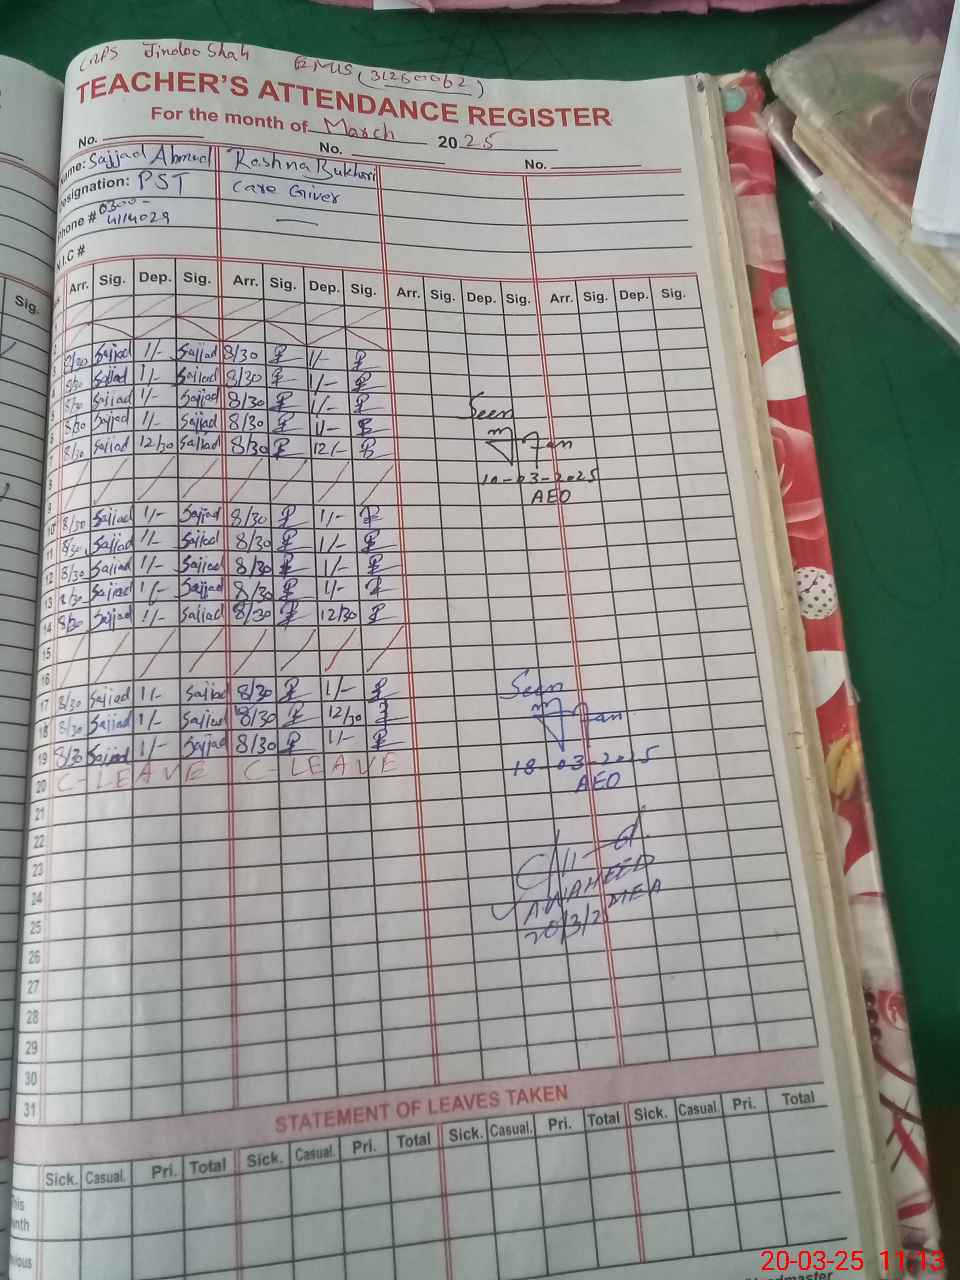 GPS Jindoo Shah EMIS (31260062)
TEACHER'S ATTENDANCE REGISTER
For the month of March 2025
No. No. No.
Name: Sajjad Ahmad Roshna Bukhari
Designation: PST Care Giver
Phone # 0300-4114029 —
N.I.C #
Arr. Sig. Dep. Sig. Arr. Sig. Dep. Sig. Arr. Sig. Dep. Sig. Arr. Sig. Dep. Sig.
1
2
3 8/30 Sajjad 1/- Sajjad 8/30 1/-
4 8/30 Sajjad 1/- Sajjad 8/30 1/-
5 8/30 Sajjad 1/- Sajjad 8/30 1/-
6 8/30 Sajjad 1/- Sajjad 8/30 1/-
7 8/30 Sajjad 12/30 Sajjad 8/30 12/-
8
9
10 8/30 Sajjad 1/- Sajjad 8/30 1/-
11 8/30 Sajjad 1/- Sajjad 8/30 1/-
12 8/30 Sajjad 1/- Sajjad 8/30 1/-
13 8/30 Sajjad 1/- Sajjad 8/30 1/-
14 8/30 Sajjad 1/- Sajjad 8/30 12/30
15
16
17 8/30 Sajjad 1/- Sajjad 8/30 1/-
18 8/30 Sajjad 1/- Sajjad 8/30 12/30
19 8/30 Sajjad 1/- Sajjad 8/30 1/-
20 C-LEAVE C-LEAVE
21
22
23
24
25
26
27
28
29
30
31
Seen
10-03-2025
AEO
Seen
18-03-2025
AEO
AWAHEED
MEA
20/3/25
STATEMENT OF LEAVES TAKEN
Sick. Casual. Pri. Total Sick. Casual. Pri. Total Sick. Casual. Pri. Total Sick. Casual. Pri. Total
Sig.
20-03-25 11:13